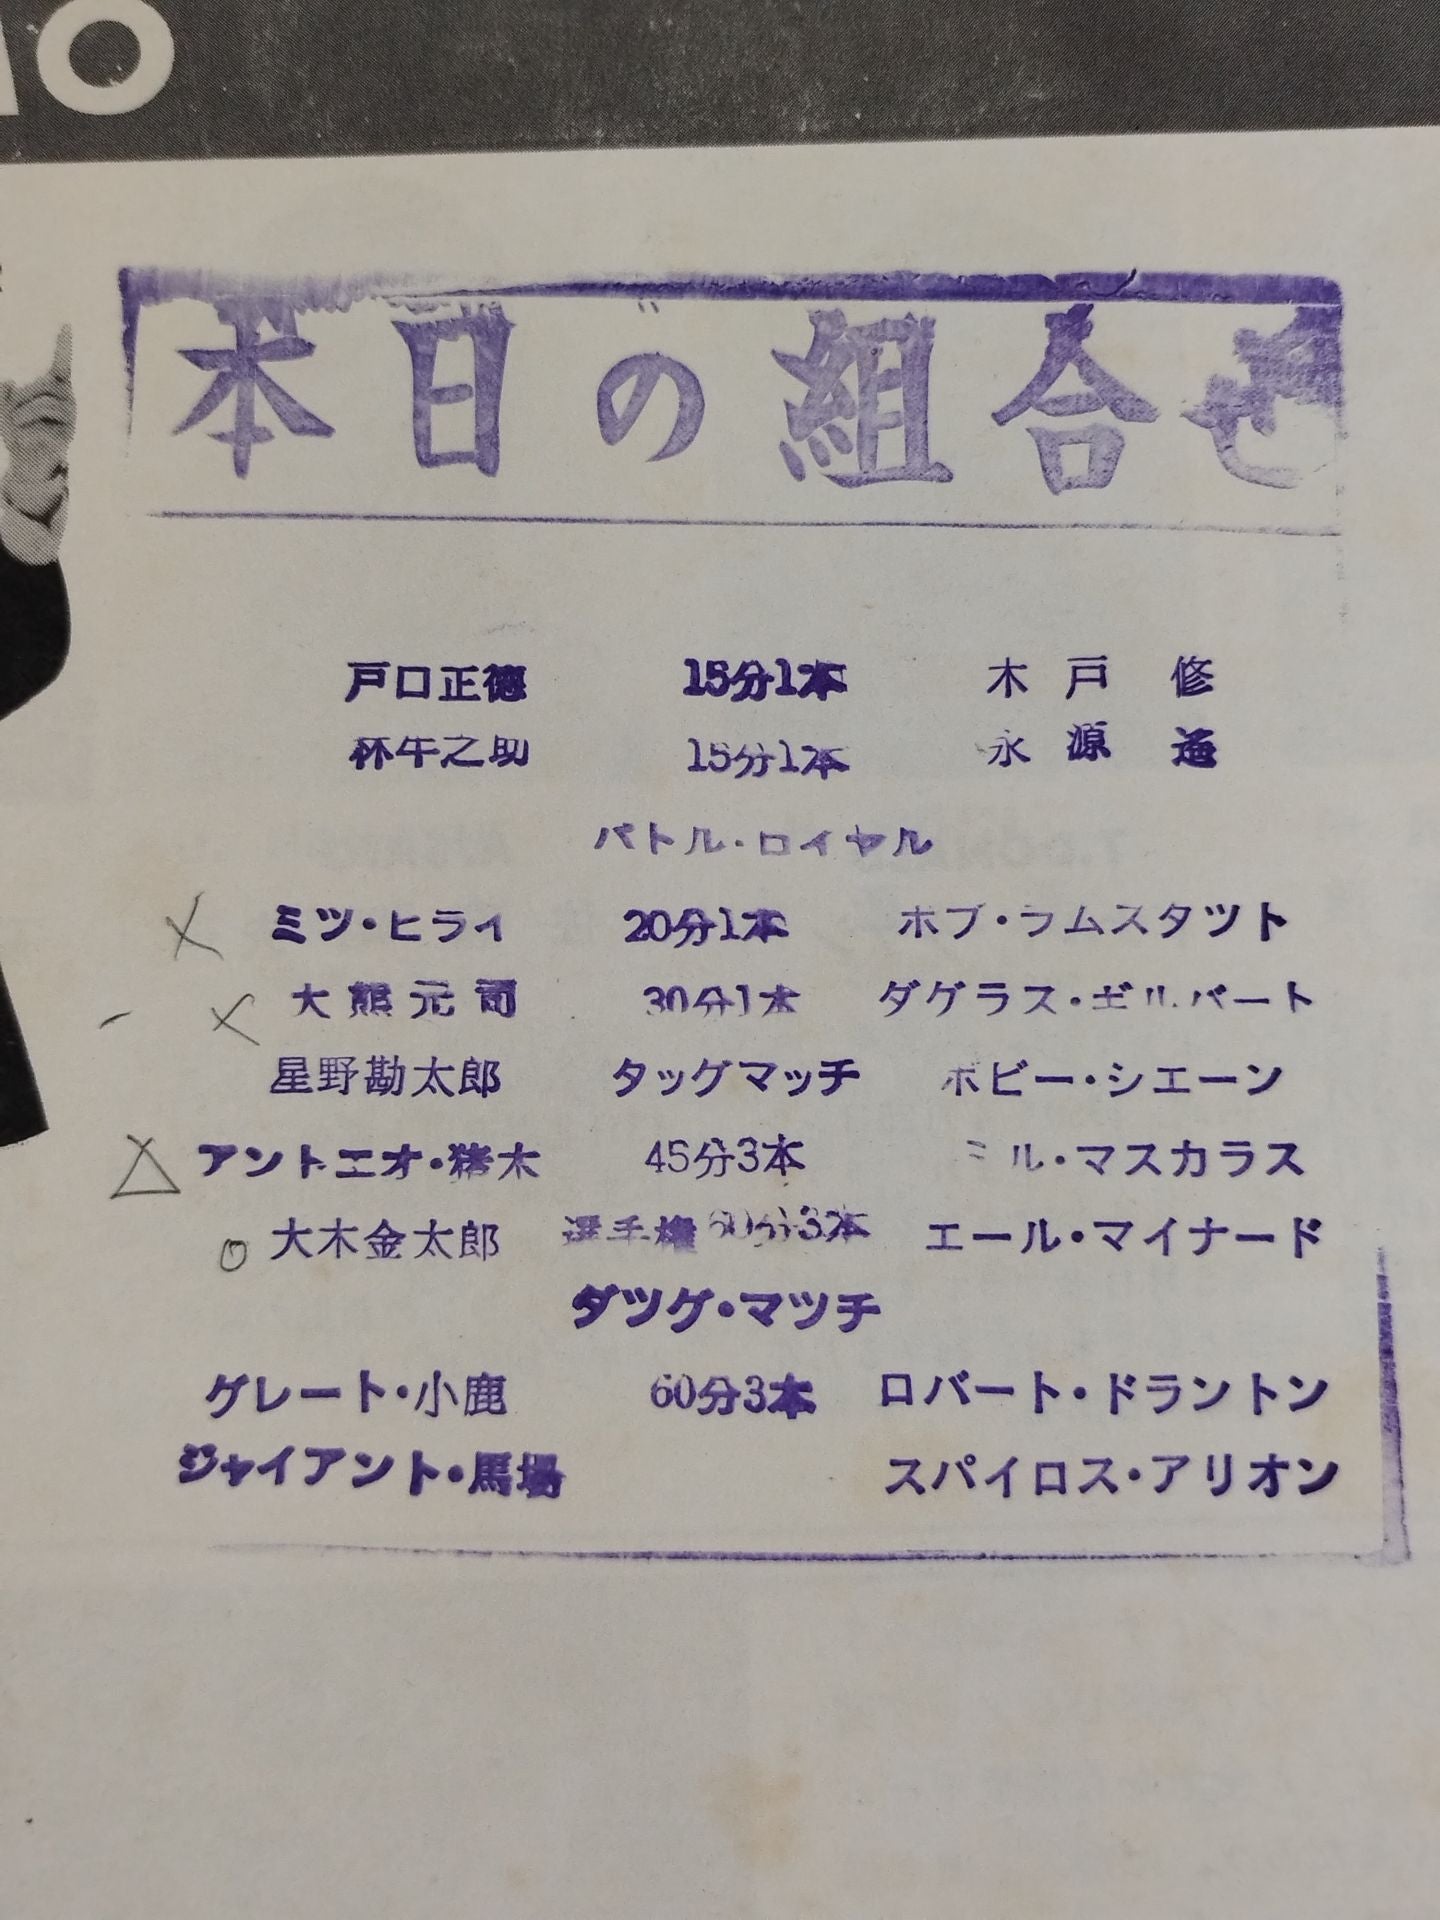 IO
本日の組合せ
戸口正徳 15分1本 木戸 修
林牛之助 15分1本 永源 遥
バトル・ロイヤル
ミツ・ヒライ 20分1本 ボブ・ラムスタツト
大熊元司 30分1本 ダグラス・ギルバート
星野勘太郎 タッグマッチ ボビー・シエーン
アントニオ・猪木 45分3本 ミル・マスカラス
大木金太郎 選手権60分3本 エール・マイナード
タツグ・マツチ
グレート・小鹿 60分3本 ロバート・ドラントン
ジャイアント・馬場 スパイロス・アリオン